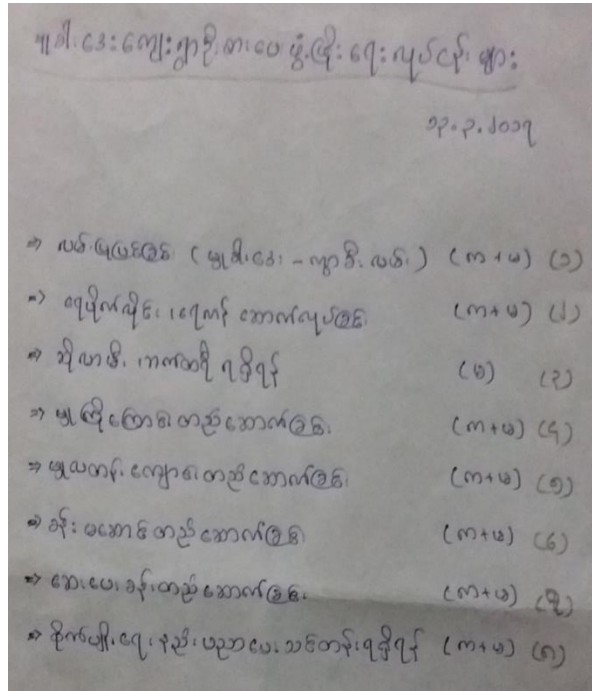 ကျေးရွာဦးစားပေးဖွံ့ဖြိုးရေးလုပ်ငန်းများ
၁၃.၃.၂၀၁၇
⇒ လမ်းပြုပြင်ခြင်း ( လမ်း ) (က+မ) (၁)
⇒ ရေပိုက်လိုင်း၊ ရေကန် ဆောက်လုပ်ခြင်း (က+မ) (၂)
⇒ ဆိုလာမီး ဘက်ထရီ ရရှိရန် (မ) (၃)
⇒ မူကြိုကျောင်းတည်ဆောက်ခြင်း (က+မ) (၄)
⇒ မူလတန်းကျောင်းတည်ဆောက်ခြင်း (က+မ) (၅)
⇒ ခန်းမဆောင်တည်ဆောက်ခြင်း (က+မ) (၆)
⇒ ဆေးပေးခန်းတည်ဆောက်ခြင်း (က+မ) (၇)
⇒ စိုက်ပျိုးရေးနည်းပညာပေးသင်တန်းရရှိရန် (က+မ) (၈)